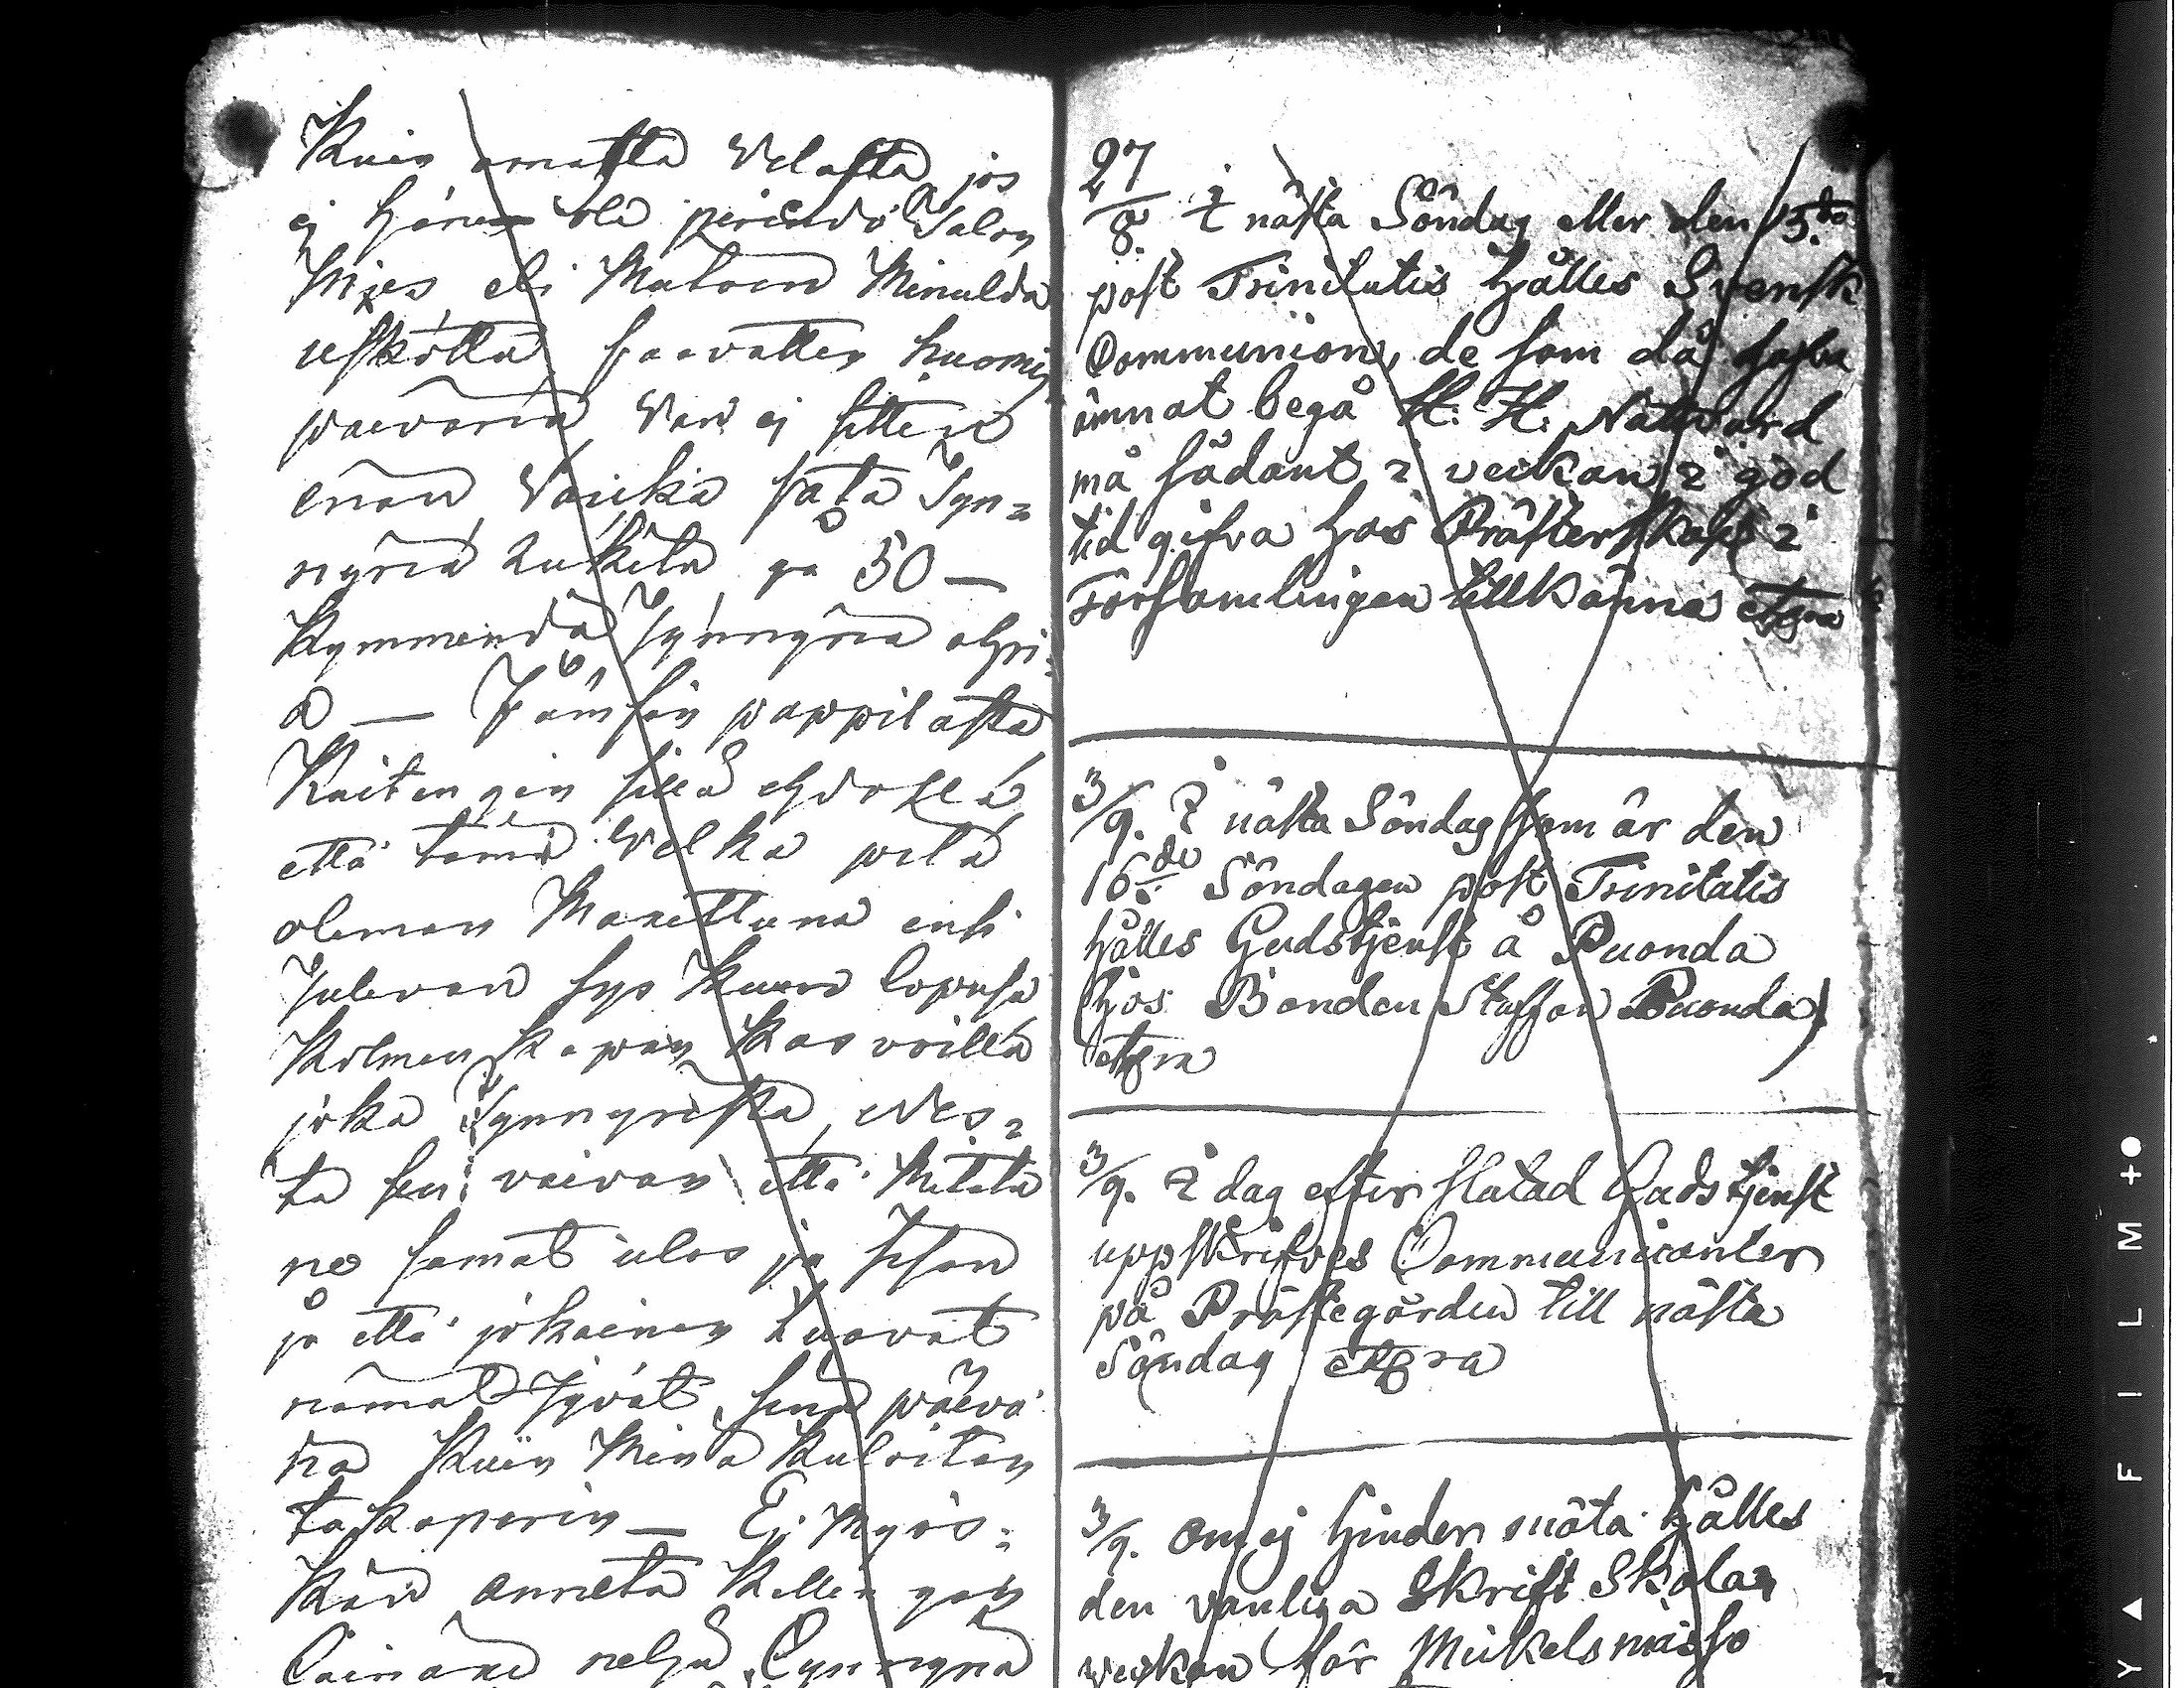 Kuin omasta Velasta jos
ej hänen ole perändö Talon
Mies eli Matwen Minulda
uskotta saavatten huomis
paevana Van ej sitten
enän Vaicka sata Tyn=
nyriä luketa på 50 —
Kymmendä Tynnyriä ohri=
a — Jämsän pappilasta
Kaitengin sillä ehdolla
että tämä Velka pitä
oleman Maxettuna ensi
Tulevan sys Kuun lopusa
Kolmen Kapan Kasvoilla
joka Tynnyristä, Nes=
ta sen vaivan että Mitata
ne samat ulos ja sisän
ja että jokainen tuovat
nämät Jyvät sinä päevä
nä Kuin Minä Kuloitan
takaperin — Ej Myös=
Kän anneta Kellen gän
Enämbä neljä Tynnyriä
27/8. I nästa Söndag eller den 15:de
post Trinitatis hålles Svensk
Communion, de som då hafva
ämnat begå H: H: Nattvard
må sådant i veckan i god
tid gifva hos Prästerskapet i
Församlingen tillkänna etc:ra
3/9. I nästa Söndag som är den
16:de Söndagen post Trinitatis
hålles Gudstjenst å Puonda
(hos Bonden Staffan Puonda)
etc:ra
3/9. I dag efter slutad Gudstjenst
uppskrifves Communicanter
på Prästegården till nästa
Söndag etc:ra
3/9. Om ej hinder möta hålles
den vanliga Skrift Skolan
veckan för Mickelsmässo
FILM